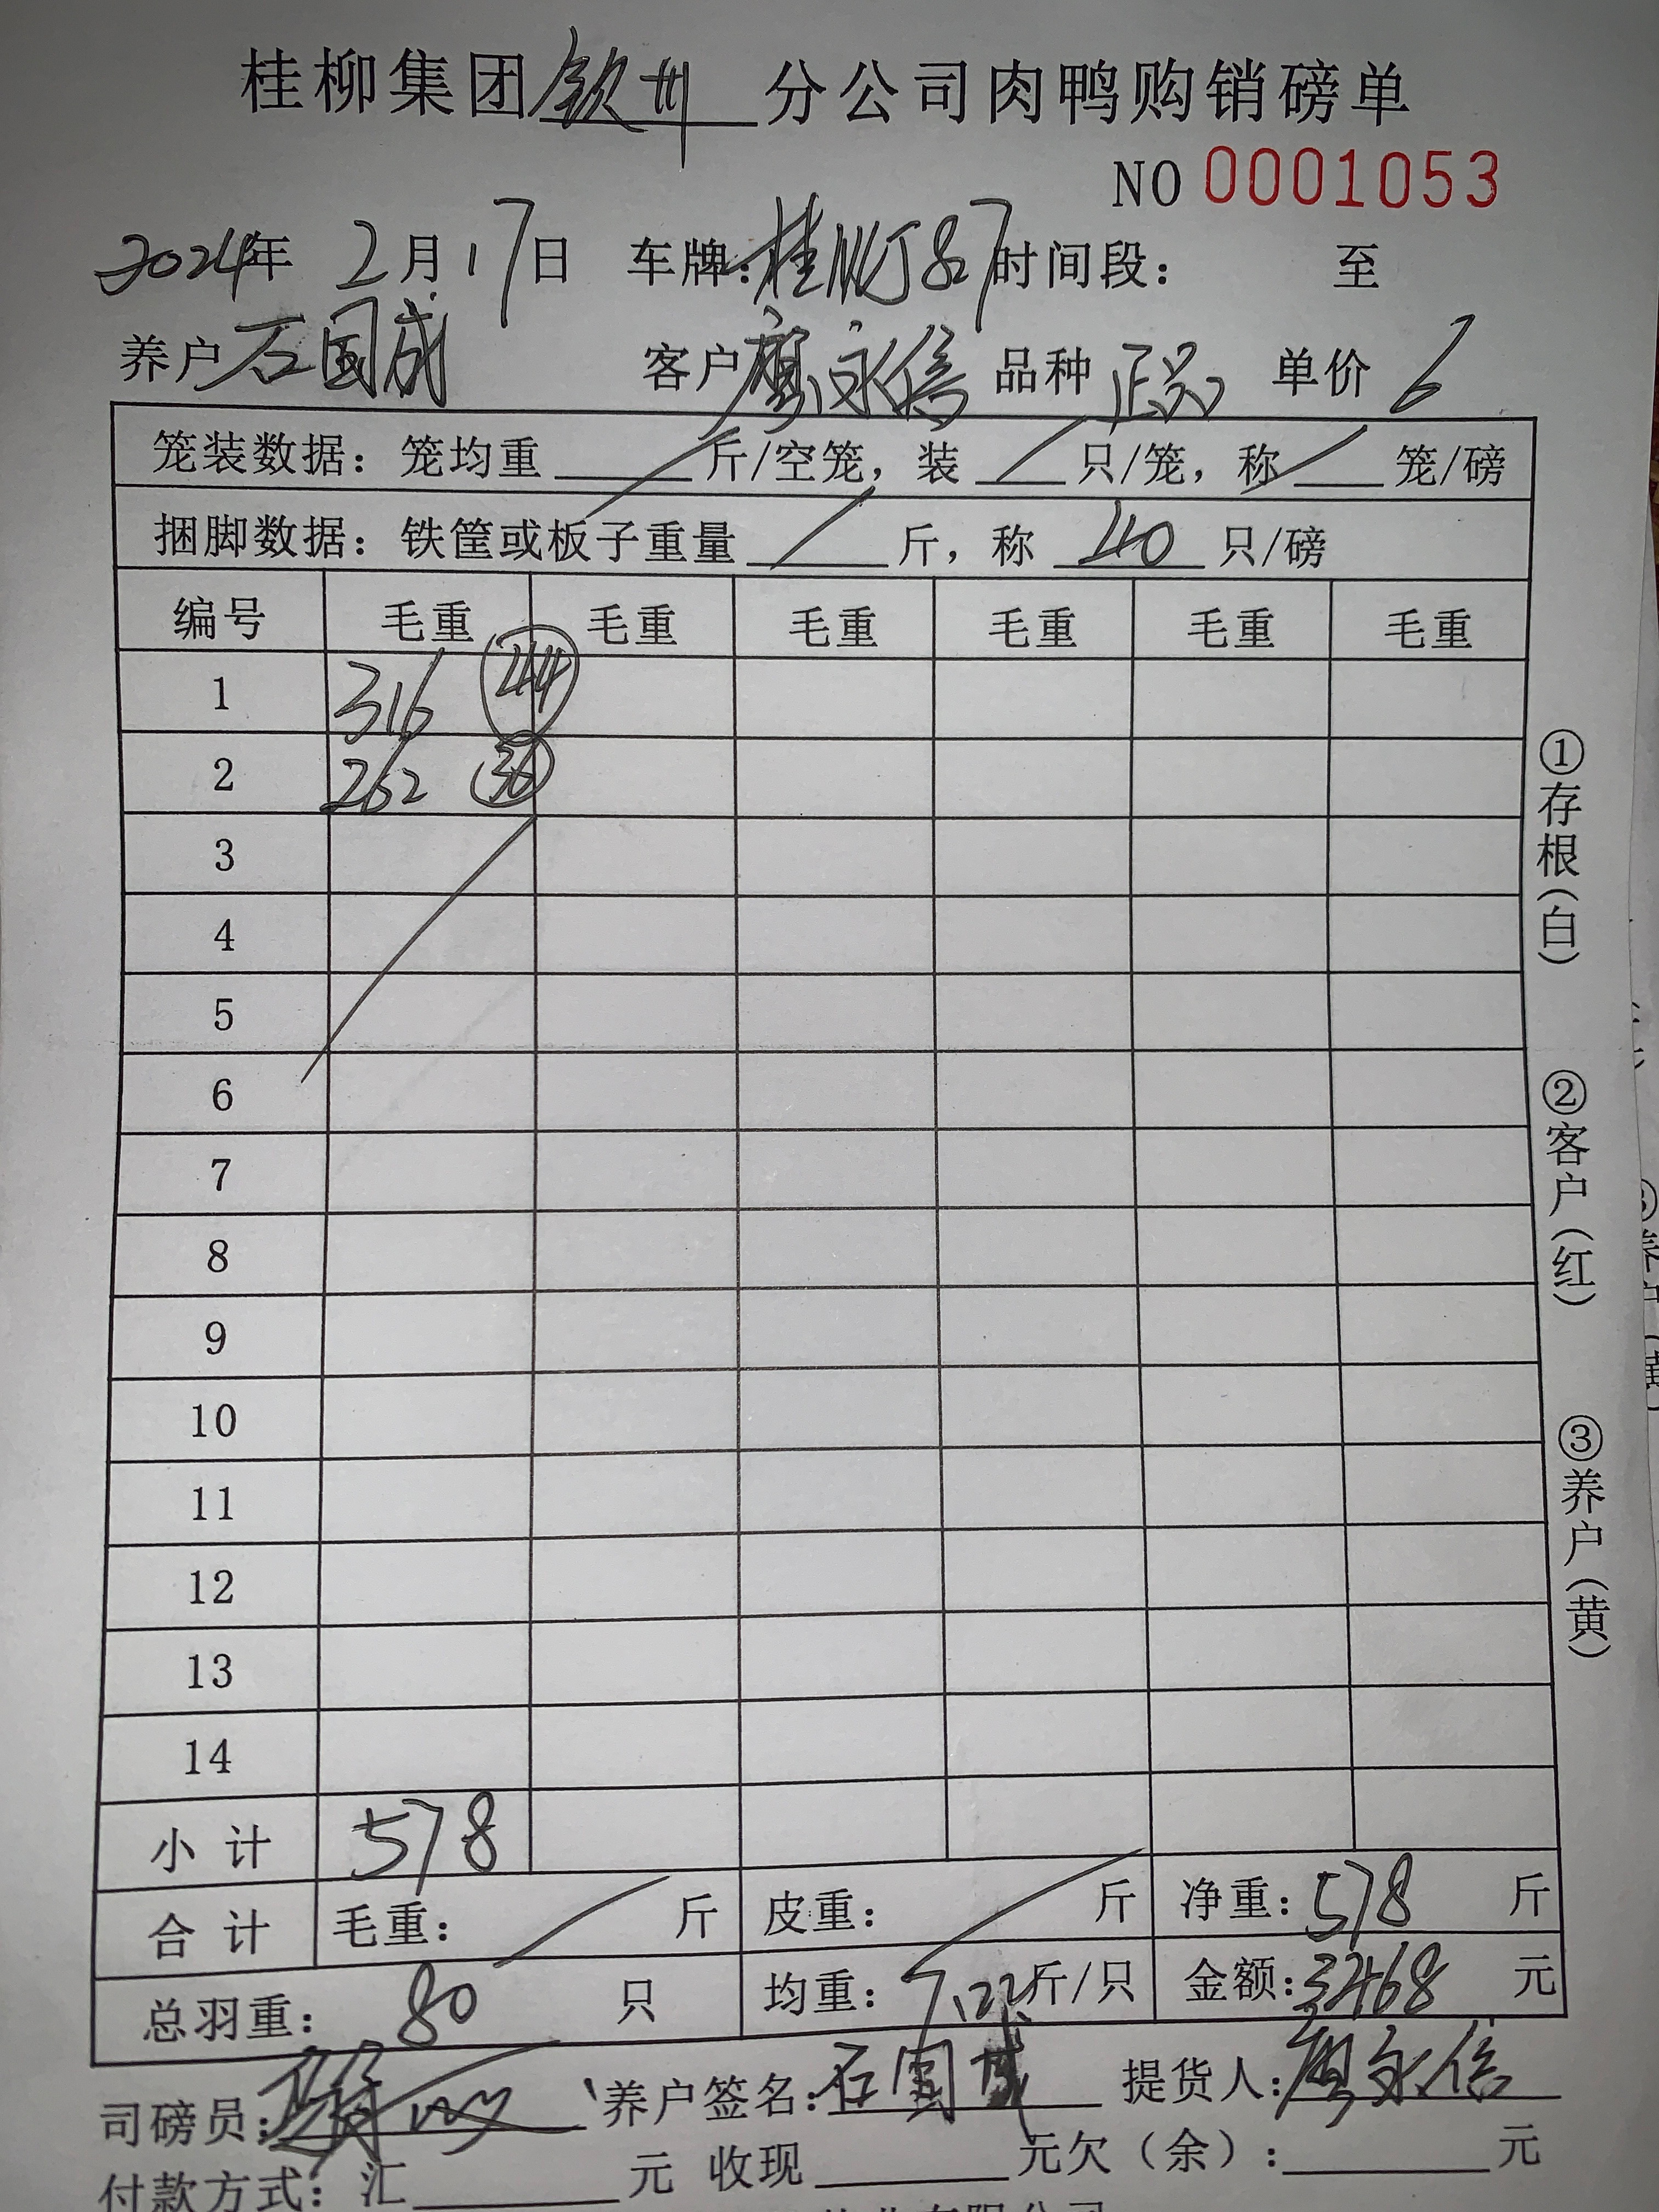 桂柳集团 钦州 分公司肉鸭购销磅单
NO 0001053
2024年 2月17日 车牌: 时间段: 至
养户 石国成 客户 廖永信 品种 正品 单价 6
笼装数据: 笼均重 / 斤/空笼, 装 / 只/笼, 称 / 笼/磅
捆脚数据: 铁筐或板子重量 / 斤, 称 40 只/磅
编号 毛重 毛重 毛重 毛重 毛重 毛重
1 316 44
2 262 36
3
4
5
6
7
8
9
10
11
12
13
14
小计 578
合计 毛重: / 斤 皮重: / 斤 净重: 578 斤
总羽重: 80 只 均重: 7.22斤/只 金额: 3468 元
司磅员: 养户签名: 石国成 提货人: 廖永信
付款方式: 汇 元 收现 元欠(余): 元
①存根(白)
②客户(红)
③养户(黄)